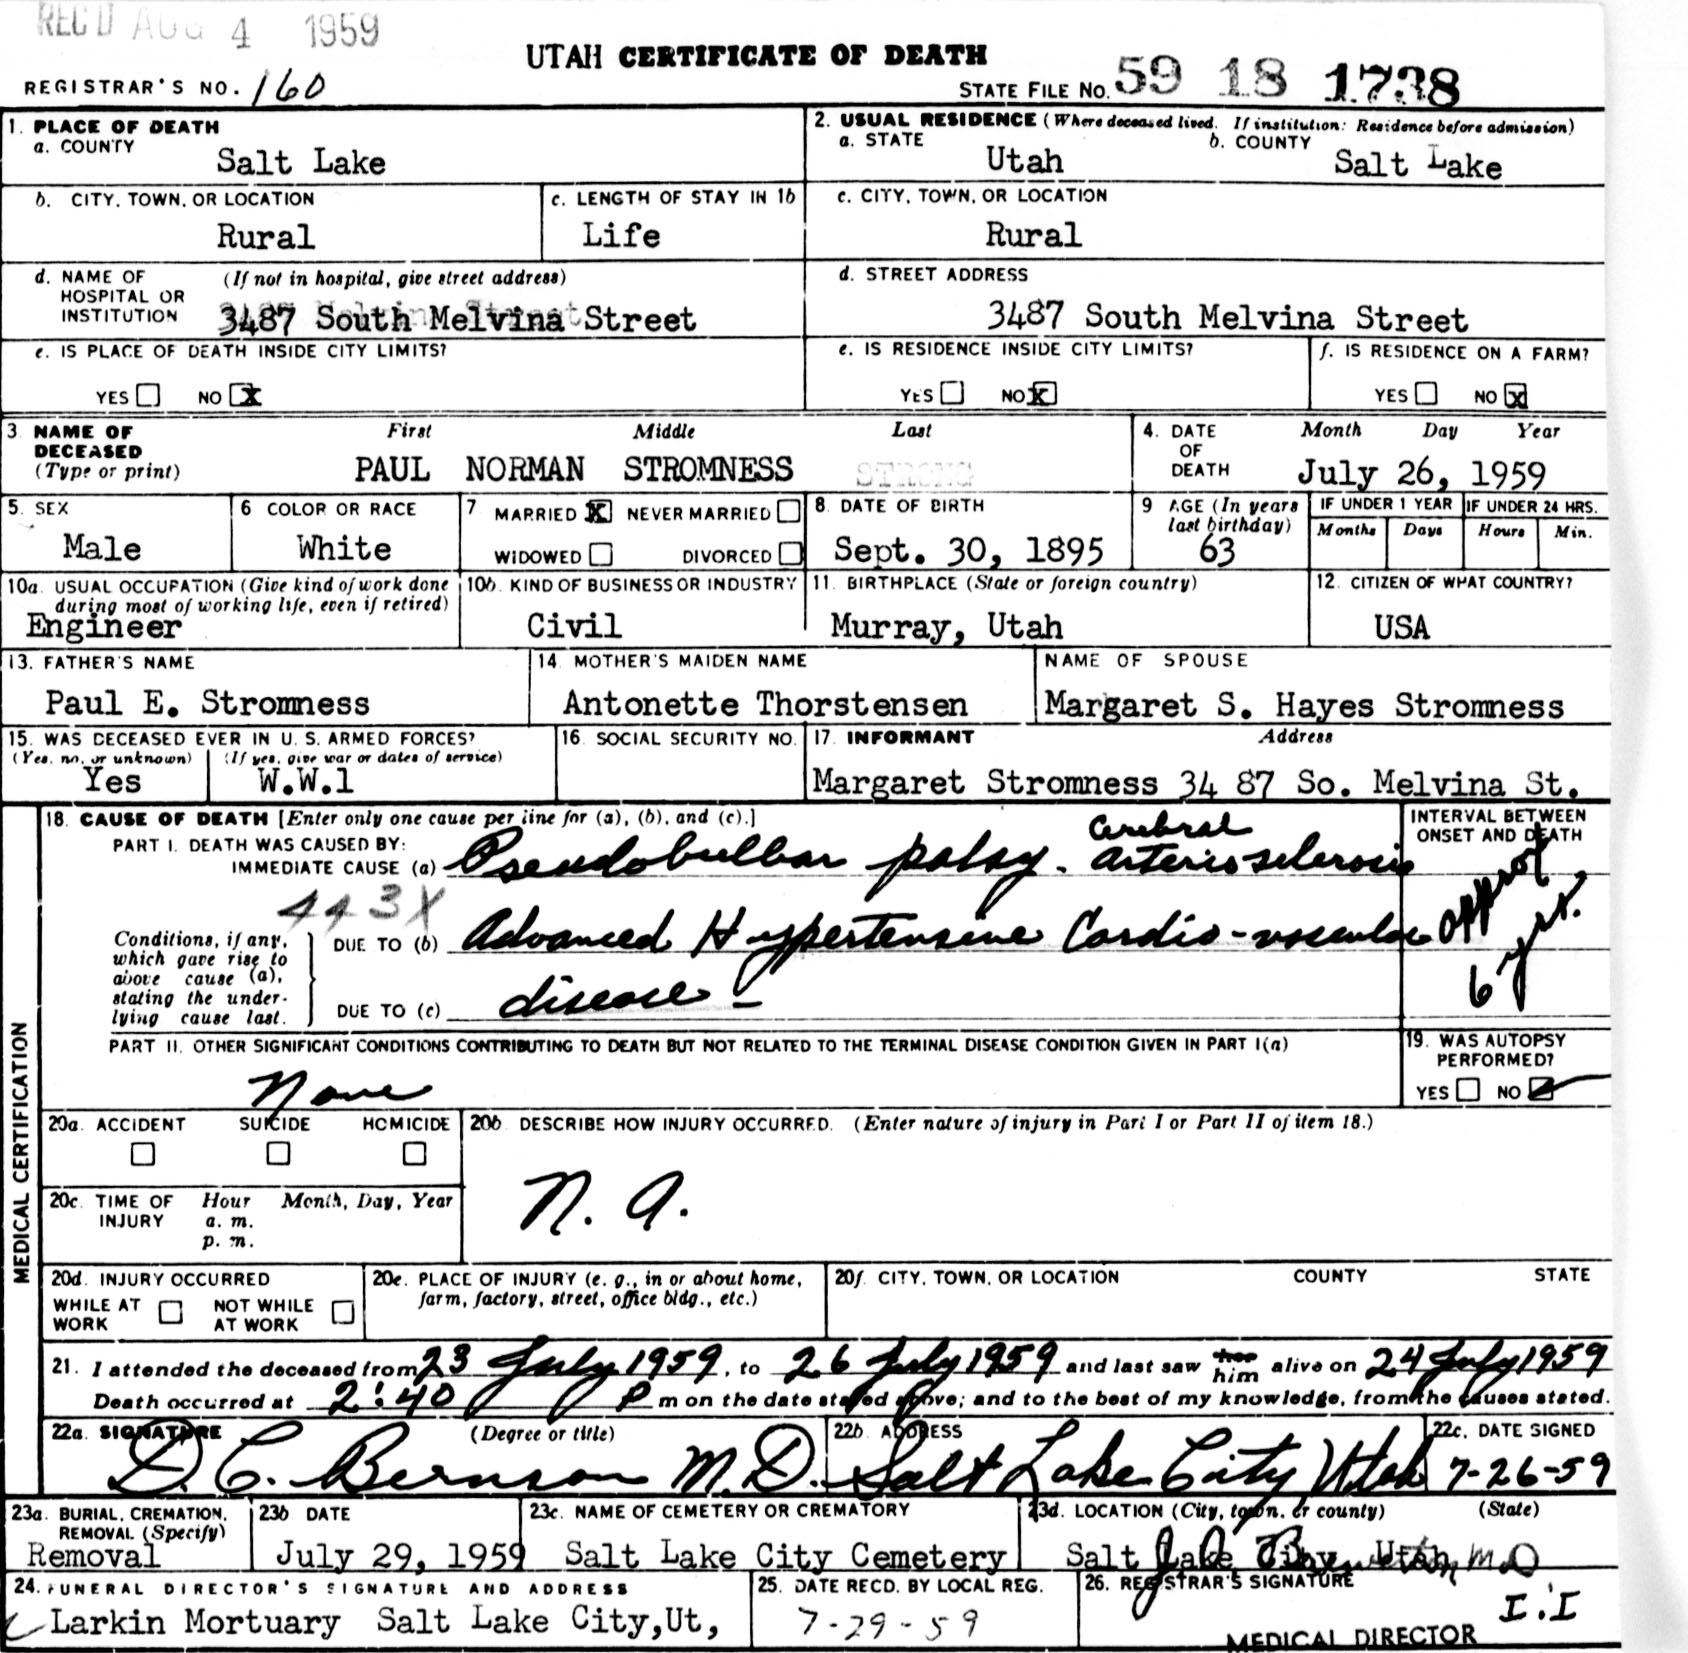 REC'D AUG 4 1959
UTAH CERTIFICATE OF DEATH
REGISTRAR'S NO. 160
STATE FILE NO. 59 18 1738
1. PLACE OF DEATH
a. COUNTY
Salt Lake
2. USUAL RESIDENCE (Where deceased lived. If institution: Residence before admission)
a. STATE b. COUNTY
Utah Salt Lake
b. CITY, TOWN, OR LOCATION
Rural
c. LENGTH OF STAY IN 1b
Life
c. CITY, TOWN, OR LOCATION
Rural
d. NAME OF (If not in hospital, give street address)
HOSPITAL OR
INSTITUTION 3487 South Melvina Street
d. STREET ADDRESS
3487 South Melvina Street
e. IS PLACE OF DEATH INSIDE CITY LIMITS?
YES NO X
e. IS RESIDENCE INSIDE CITY LIMITS?
YES NO X
f. IS RESIDENCE ON A FARM?
YES NO X
3 NAME OF First Middle Last
DECEASED
(Type or print) PAUL NORMAN STROMNESS STRONG
4. DATE Month Day Year
OF
DEATH July 26, 1959
5. SEX
Male
6 COLOR OR RACE
White
7 MARRIED X NEVER MARRIED
WIDOWED DIVORCED
8 DATE OF BIRTH
Sept. 30, 1895
9 AGE (In years
last birthday)
63
IF UNDER 1 YEAR IF UNDER 24 HRS.
Months Days Hours Min.
10a. USUAL OCCUPATION (Give kind of work done
during most of working life, even if retired)
Engineer
10b. KIND OF BUSINESS OR INDUSTRY
Civil
11. BIRTHPLACE (State or foreign country)
Murray, Utah
12. CITIZEN OF WHAT COUNTRY?
USA
13. FATHER'S NAME
Paul E. Stromness
14. MOTHER'S MAIDEN NAME
Antonette Thorstensen
NAME OF SPOUSE
Margaret S. Hayes Stromness
15. WAS DECEASED EVER IN U. S. ARMED FORCES?
(Yes, no, or unknown) (If yes, give war or dates of service)
Yes W.W.1
16. SOCIAL SECURITY NO.
17. INFORMANT Address
Margaret Stromness 34 87 So. Melvina St.
MEDICAL CERTIFICATION
18. CAUSE OF DEATH [Enter only one cause per line for (a), (b), and (c).]
INTERVAL BETWEEN
ONSET AND DEATH
PART I. DEATH WAS CAUSED BY:
Cerebral
IMMEDIATE CAUSE (a) Pseudobulbar palsy - arteriosclerosis
443X
approx
6 yrs.
Conditions, if any,
which gave rise to
above cause (a),
stating the under-
lying cause last.
DUE TO (b) Advanced Hypertensive Cardio-vascular
DUE TO (c) disease -
PART II. OTHER SIGNIFICANT CONDITIONS CONTRIBUTING TO DEATH BUT NOT RELATED TO THE TERMINAL DISEASE CONDITION GIVEN IN PART I(a)
None
19. WAS AUTOPSY
PERFORMED?
YES NO
20a. ACCIDENT SUICIDE HOMICIDE
20b. DESCRIBE HOW INJURY OCCURRED. (Enter nature of injury in Part I or Part II of item 18.)
N. A.
20c. TIME OF Hour Month, Day, Year
INJURY a. m.
p. m.
20d. INJURY OCCURRED
WHILE AT NOT WHILE
WORK AT WORK
20e. PLACE OF INJURY (e. g., in or about home,
farm, factory, street, office bldg., etc.)
20f. CITY, TOWN, OR LOCATION COUNTY STATE
21. I attended the deceased from 23 July 1959, to 26 July 1959 and last saw her him alive on 24 July 1959
Death occurred at 2:40 P m on the date stated above; and to the best of my knowledge, from the causes stated.
22a. SIGNATURE (Degree or title)
D. C. Bernson M.D.
22b. ADDRESS
Salt Lake City Utah
22c. DATE SIGNED
7-26-59
23a. BURIAL, CREMATION,
REMOVAL (Specify)
Removal
23b DATE
July 29, 1959
23c. NAME OF CEMETERY OR CREMATORY
Salt Lake City Cemetery
23d. LOCATION (City, town, or county) (State)
Salt Lake City Utah
M.D
24. FUNERAL DIRECTOR'S SIGNATURE AND ADDRESS
Larkin Mortuary Salt Lake City,Ut,
25. DATE RECD. BY LOCAL REG.
7-29-59
26. REGISTRAR'S SIGNATURE
I.I
MEDICAL DIRECTOR